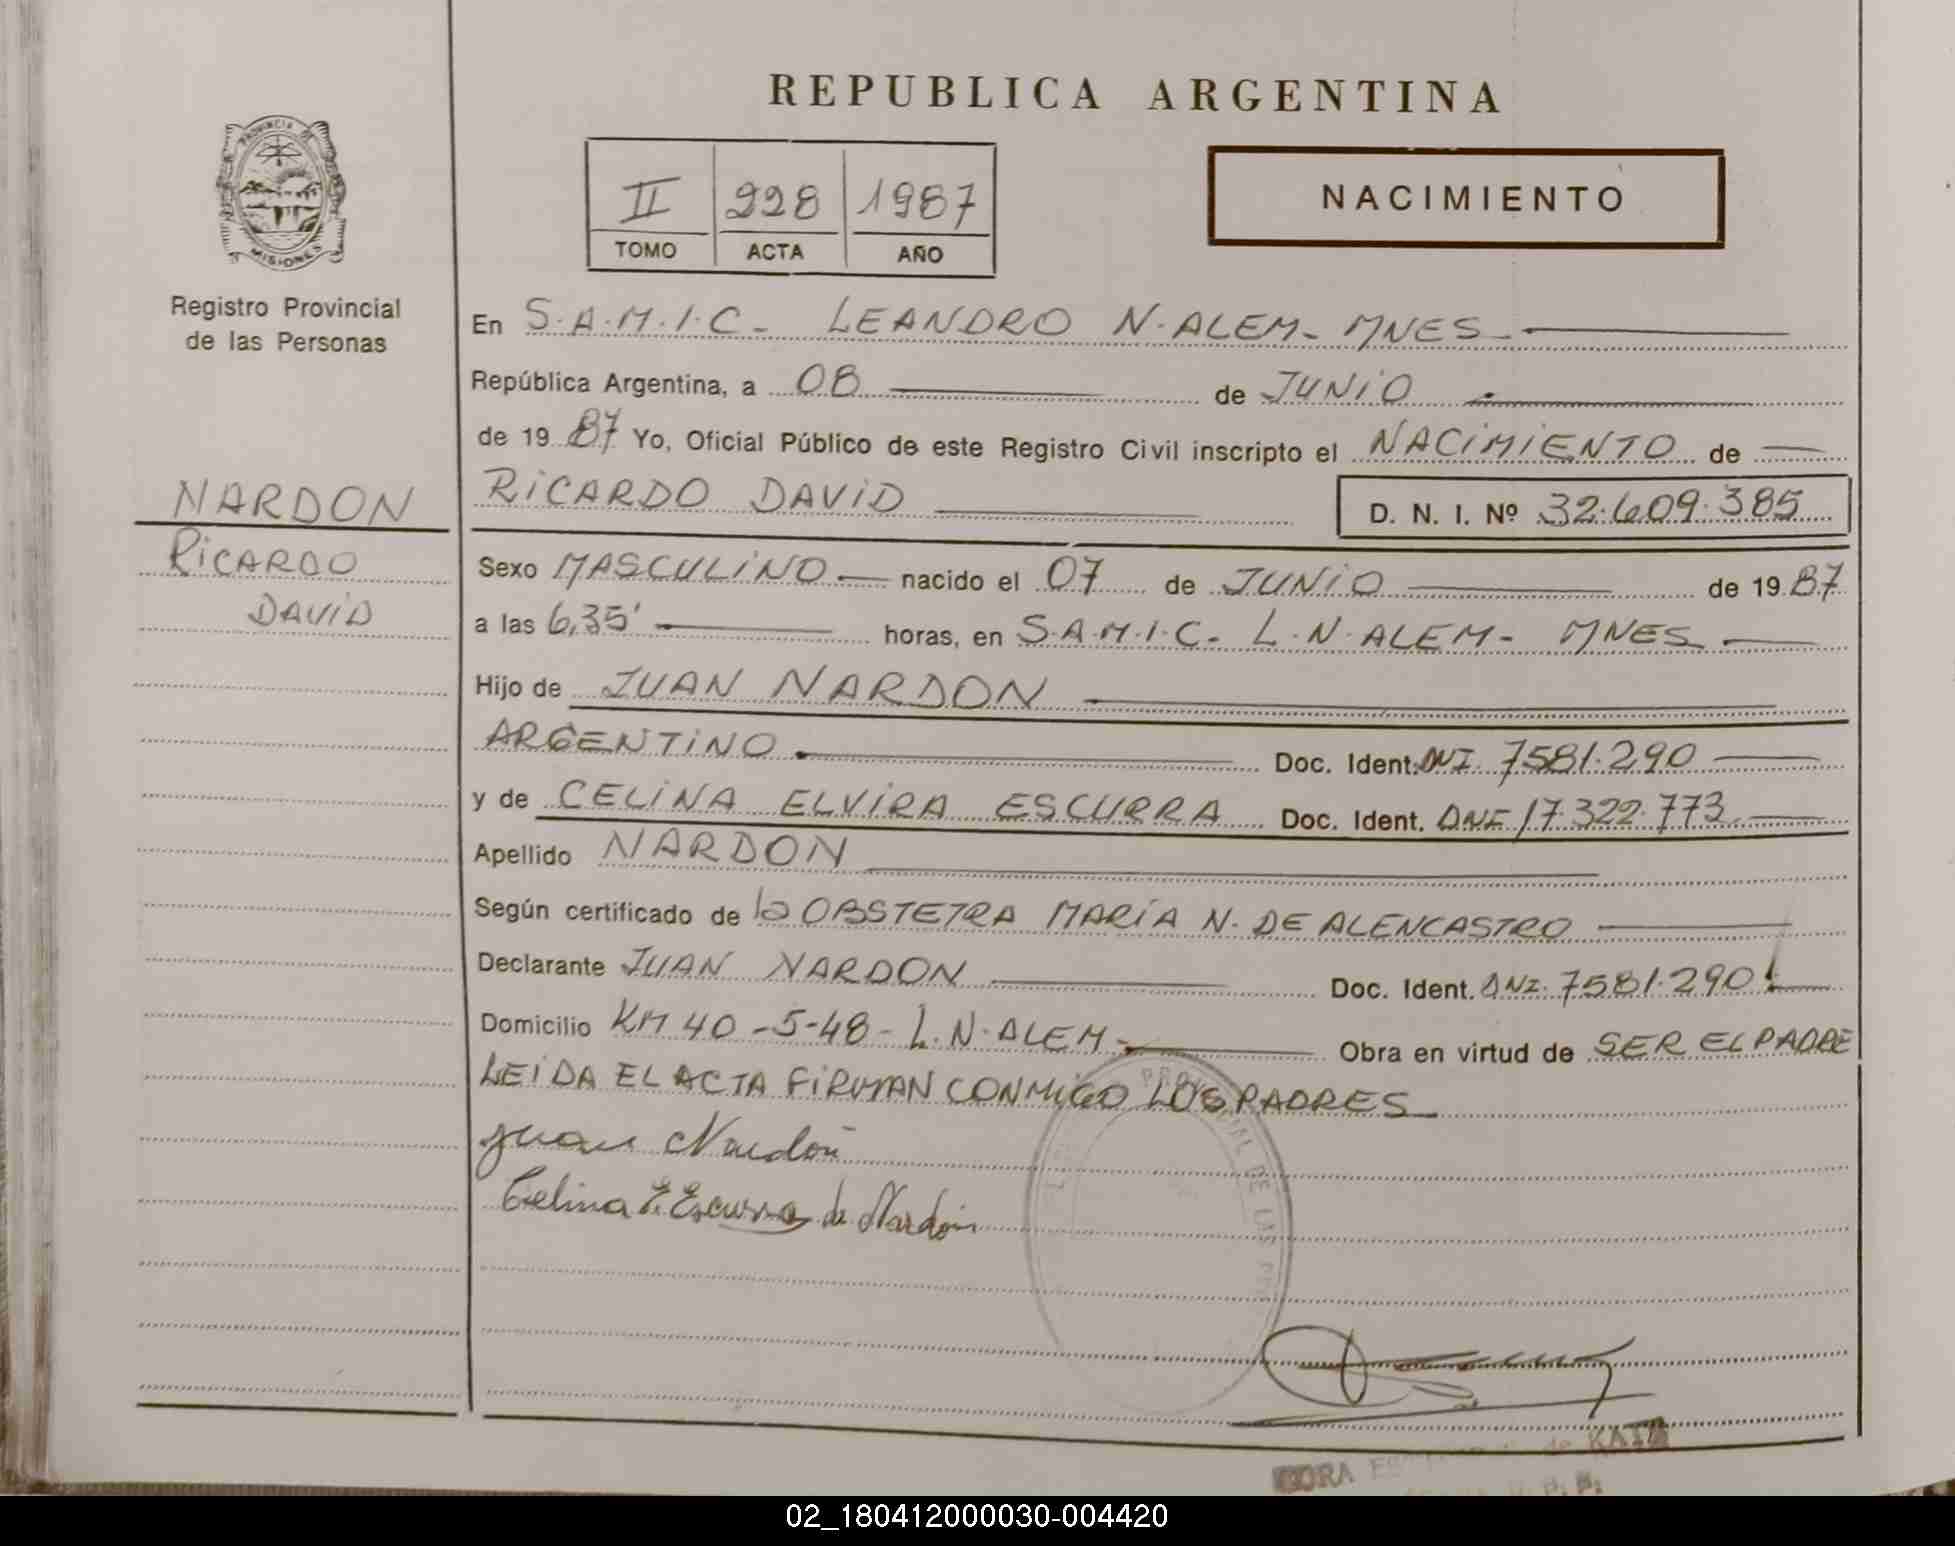 REPUBLICA ARGENTINA
PROVINCIA DE
MISIONES
Registro Provincial
de las Personas
II 228 1987
TOMO ACTA AÑO
NACIMIENTO
NARDON
RICARDO
DAVID
En S.A.M.I.C. LEANDRO N. ALEM - MNES
República Argentina, a 08 de JUNIO
de 1987 Yo, Oficial Público de este Registro Civil inscripto el NACIMIENTO de
RICARDO DAVID D. N. I. Nº 32.609.385
Sexo MASCULINO nacido el 07 de JUNIO de 1987
a las 6,35' horas, en S.A.M.I.C. L.N. ALEM - MNES
Hijo de JUAN NARDON
ARGENTINO Doc. Ident. DNI 7581.290
y de CELINA ELVIRA ESCURRA Doc. Ident. DNI 17.322.773
Apellido NARDON
Según certificado de la OBSTETRA MARÍA N. DE ALENCASTRO
Declarante JUAN NARDON Doc. Ident. DNI 7581.290
Domicilio KM 40 - 5-48 - L.N. ALEM Obra en virtud de SER EL PADRE
LEIDA EL ACTA FIRMAN CONMIGO LOS PADRES
Juan Nardón
Celina E. Escurra de Nardón
PROVINCIAL DE LAS
DORA de KATZ
02_180412000030-004420